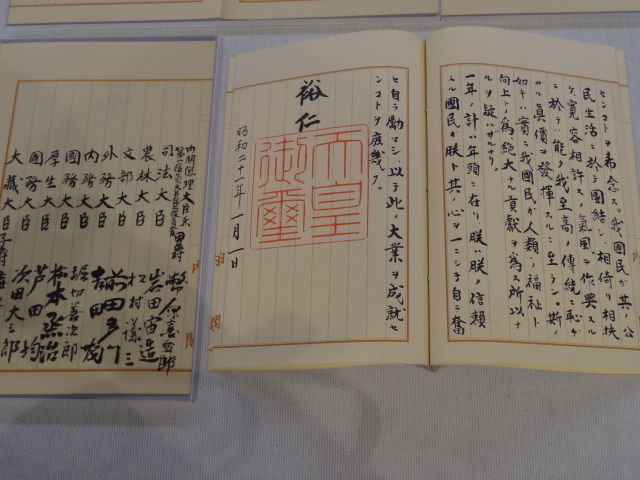 センコトヲ希念ス。我國民ガ其ノ公
民生活ニ於テ團結シ、相倚リ相扶
ケ、寛容相許スノ氣風ヲ作興スル
ニ於テハ、能ク我至高ノ傳統ニ恥ヂ
ザル眞價ヲ發揮スルニ至ラン。斯ノ
如キハ實ニ我國民ガ人類ノ福祉ト
向上トノ爲、絶大ナル貢獻ヲ爲ス所以ナ
ルヲ疑ハザルナリ。
一年ノ計ハ年頭ニ在リ、朕ハ朕ノ信頼
スル國民ガ朕ト其ノ心ヲ一ニシテ自ラ奮
ヒ自ラ勵マシ、以テ此ノ大業ヲ成就セ
ンコトヲ庶幾フ。
裕仁
天皇
御璽
昭和二十一年一月一日
内閣
内閣總理大臣兼
男爵 幣原喜重郎
司法大臣 岩田宙造
農林大臣 松村謙三
文部大臣 前田多門
外務大臣 吉田茂
内務大臣 堀切善次郎
國務大臣 松本烝治
厚生大臣 芦田均
國務大臣 次田大三郎
大藏大臣子爵